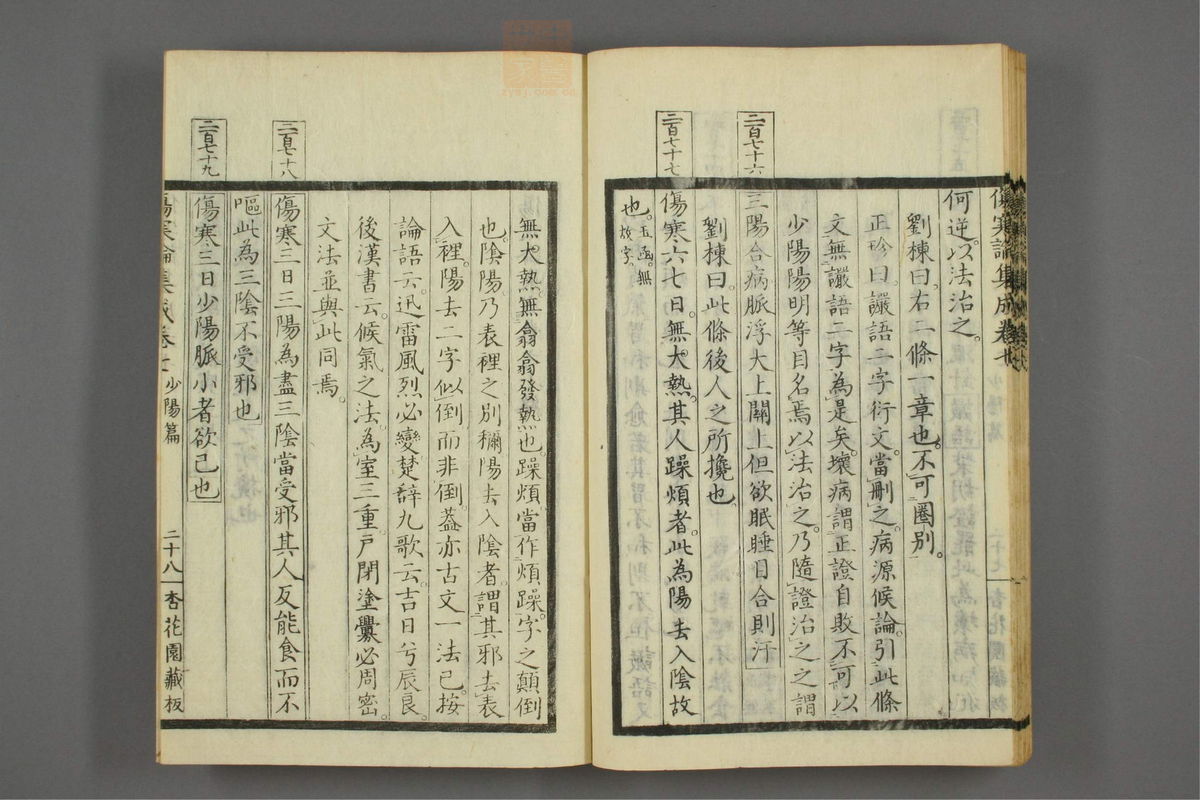 傷寒論集成卷
何逆以法治之。
劉棟曰。右二條一章也。不可圈別。
正珍曰。讝語二字衍文。當刪之。病源候論。引此條
文。無讝語二字。為是矣。壞病謂正證自敗。不可以
少陽陽明等目名焉。以法治之。乃隨證治之之謂
二百七十六
三陽合病脈浮大上關上但欲眠睡目合則汗
劉棟曰。此條後人之所攙也
二百七十七
傷寒六七日。無大熱。其人躁煩者。此為陽去入陰故
也。玉函。無
故字。
無大熱。無翕翕發熱也。躁煩當作煩躁。字之顛倒
也。陰陽乃表裡之別稱。陽去入陰者。謂其邪去表
入裡。陽去二字。似倒而非倒。蓋亦古文一法已。按
論語云。迅雷風烈必變。楚辭九歌云。吉日兮辰良。
後漢書云。候氣之法。為室三重。戶閉。塗釁必周密。
文法並與此同焉。
二百七十八
傷寒三日三陽為盡三陰當受邪其人反能食而不
嘔此為三陰不受邪也
二百七十九
傷寒三日少陽脈小者欲已也
傷寒論集成卷七 少陽篇 二十八 杏花園藏板
zysj.com.cn